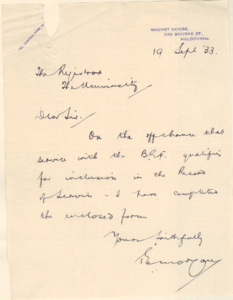 MAGNET HOUSE,
BOURKE ST.,
MELBOURNE
19 Sept '33.
The Registrar
The University
Dear Sir,
On the offchance that
service with the B.R.F. qualifies
for inclusion in the Record
of Service - I have completed
the enclosed form
Yours faithfully